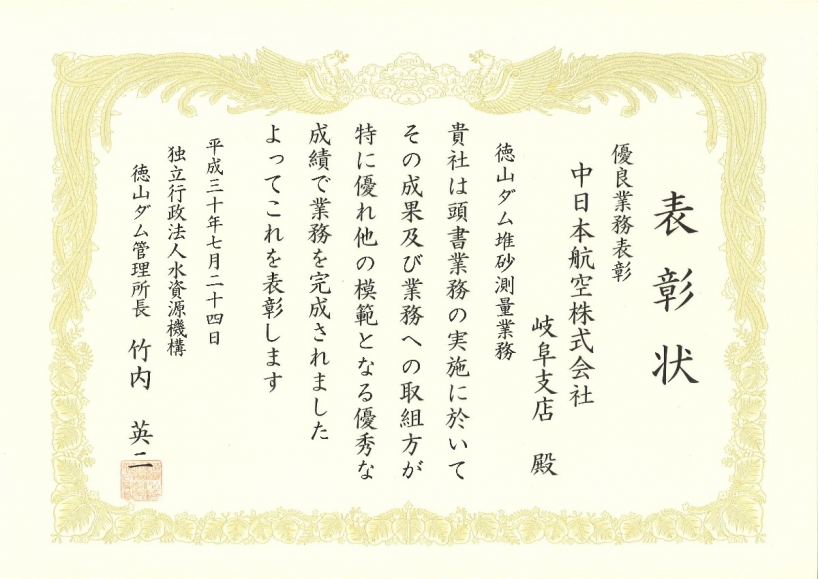 表彰状
優良業務表彰
中日本航空株式会社
岐阜支店 殿
徳山ダム堆砂測量業務
貴社は頭書業務の実施に於いて
その成果及び業務への取組方が
特に優れ他の模範となる優秀な
成績で業務を完成されました
よってこれを表彰します
平成三十年七月二十四日
独立行政法人水資源機構
徳山ダム管理所長 竹内 英二